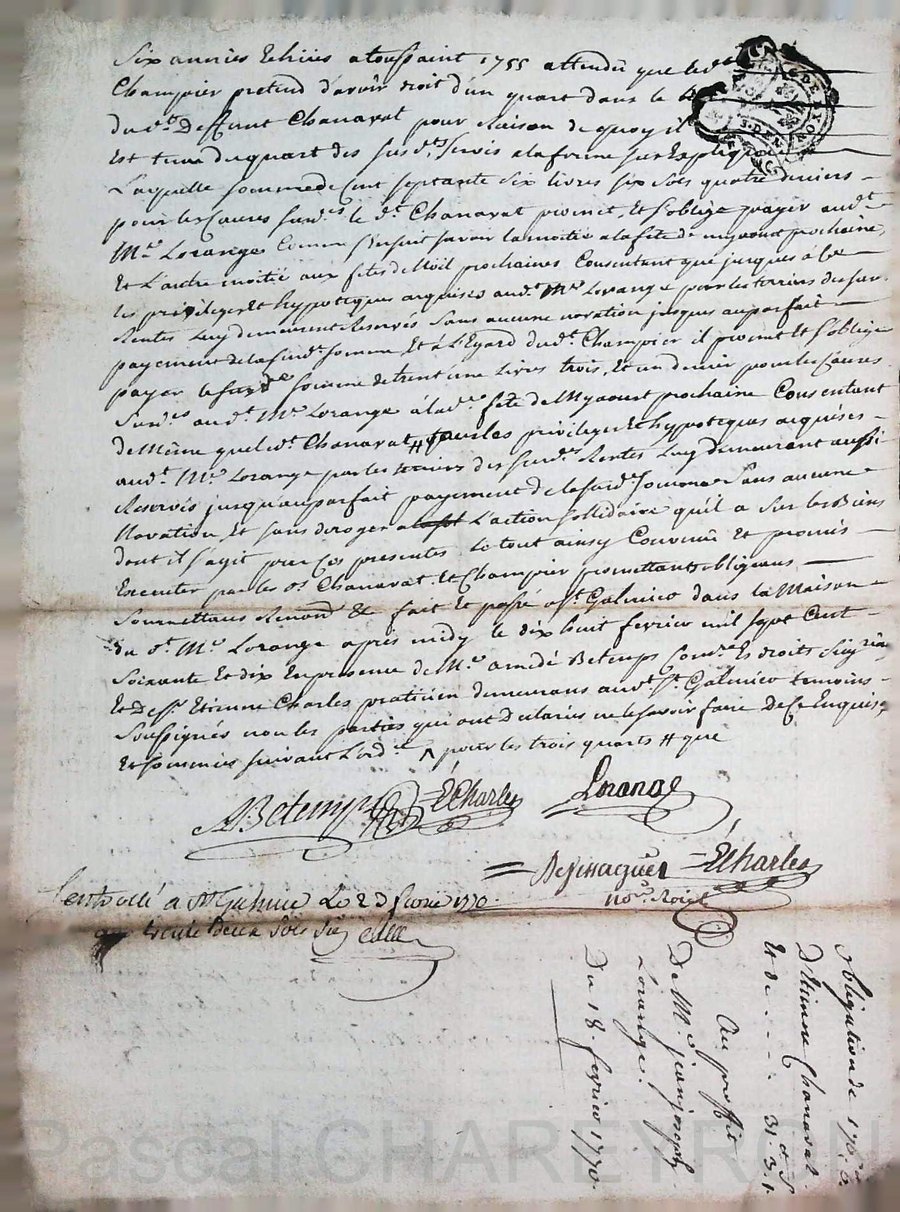 Six années Echües a toussaint 1755 attendu que led.t
Champier pretend d'avoir droit d'un quart dans le
dud.t Deffunt Chanavat pour Raison de quoy il
Est tenu du quart des susd.ts servis a la forme sus Expliq
Laquelle somme de Cent septante six livres six sols quatre deniers
pour les Causes susd.es le d.t Chanavat promet, Et s'oblige payer aud.t
M.e Lorange Comme s'Ensuit savoir la moitié a la fete de my aout prochaine,
Et L'autre moitié aux fetes de Noël prochaines Consentant que jusques à Ce
les privileges Et hyppoteques acquises aud.t M.e Lorange par les terriers desd.
Rentes Luy demeurent Reservés Sans aucune novation jusques au parfait
payement de la susd.e somme Et à L'Egard dud.t Champier il promet Et s'oblige
payer la susd.e somme de trent une livres trois, et un denier pour les Causes
susd.es aud.t M.e Lorange à la d.e fete de My aoust prochaine Consentant
de Même que led.t Chanavat # les privileges Et hyppoteques acquises
aud.t M.e Lorange par les terriers des susd.es Rentes Luy demeurant aussi
Reservés jusqu'au parfait payement de la susd.e somme Sans aucune
Novation, Et sans deroger a L'action sollidaire qu'il a sur les Biens
dont il s'agit par Ces presentes. Le tout ainsy Convenu Et promis
Executer par les d.s Chanavat, Et Champier promettant obligeant
Soumettans Renond &c fait Et passé a S.t Galmier dans la Maison
du d.t M.e Lorange apres midy le dix huit fevrier mil sept Cent
Soixante Et dix En presence de M.e amedé Betemps
Et De S.r Etienne Charles praticien demeurans aud.t S.t Galmier temoins
Soussignés non les parties qui ont déclarés ne le savoir faire De Ce Enquises
Et sommés suivant L'ord.ce ^ pour les trois quarts # que
ABetemps ECharles Lorange
ECharles
no.re Royal
Controllé à St Galmier Le 2 fevrier 1770.
trente deux sols six
G. DE LYON
3. DEN
obligation de 176.
d'Etienne Chanavat
Et de - - - - 31. 3. 1
Au proffit
De M.e jean joseph
Lorange.
Du 18. fevrier 1770.
Pascal CHAREYRON